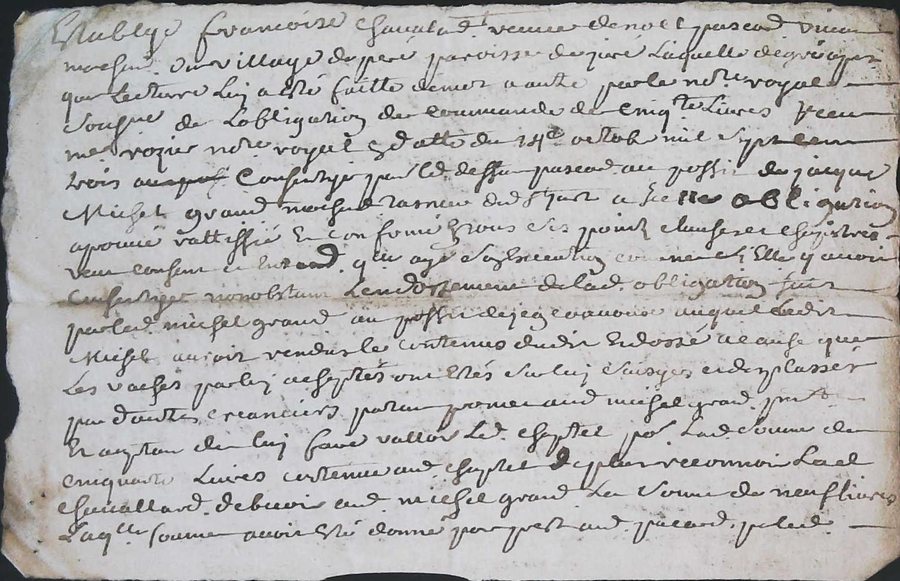 Establye francoise chavalard veuve de noel pascad vivan
marchand du village du peré paroisse de jare Laquelle de gré apres
que lecture Luy a esté faitte de mot a autre par le not.re royal
sousigné de Lobligation de commande de cinq.te Livres receu
me rozier not.re royal en datte du 14e octob mil sept cent
trois consentye par led deffun pascad au proffit de jacque
Michel grand marchand de St jure a icelle obligation
aprouvé rattiffié Et confirmé tous ses points clauses et
veut consent et Entend qu'il aye son Execution comme sy Elle y avoit
consentye nonobstant Lendossement de lad. obligation fait
par led. michel grand au proffit de auquel Ledit
Michel auroit vendu le contenu dudit Endossé a cause que
Les vaches par luy acheptés ont Estés sur luy saisyes et deplassés
par d'autres creanciers partan promet aud michel grand pnt
Et aceptan de luy faire valloir Led. cheptel po.r Lad. somme de
cinquante Livres contenue aud cheptel De plus reconnoit Lad
chavallard debvoir aud. michel grand La somme de neuf livres
Laq.lle somme avoit Esté donné par prest aud. pacard. par led.